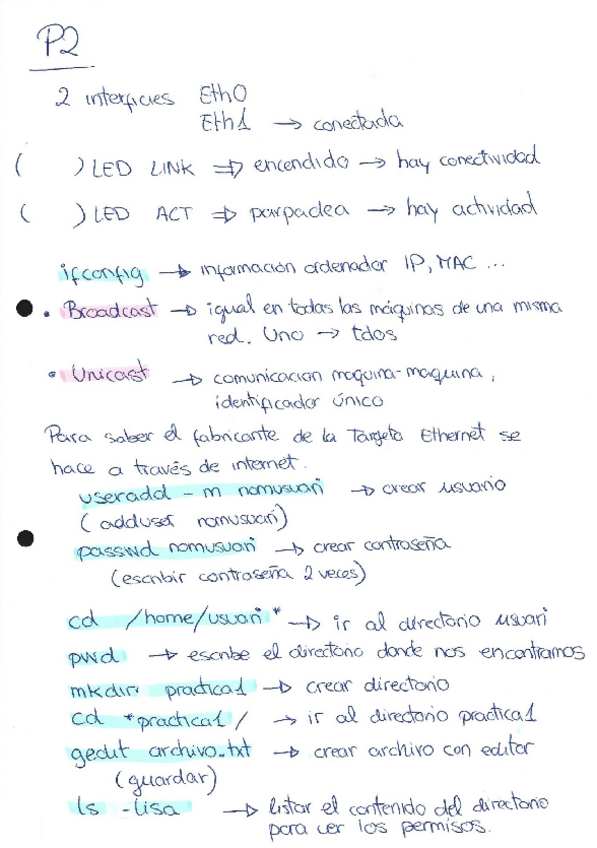 P2
2 interficies Eth0
Eth1 → conectada
( ) LED LINK ⇒ encendido → hay conectividad
( ) LED ACT ⇒ parpadea → hay actividad
ifconfig → información ordenador IP, MAC ...
• Broadcast → igual en todas las máquinas de una misma
red. Uno → tdos
• Unicast → comunicacion maquina-maquina,
identificador único
Para saber el fabricante de la Targeta Ethernet se
hace a través de internet.
useradd -m nomusuari → crear usuario
(adduser nomusuari)
passwd nomusuari → crear contraseña
(escribir contraseña 2 veces)
cd /home/usuari * → ir al directorio usuari
pwd → escribe el directorio donde nos encontramos
mkdir practica1 → crear directorio
cd *practica1/ → ir al directorio practica1
gedit archivo.txt → crear archivo con editor
(guardar)
ls -lisa → listar el contenido del directorio
para ver los permisos.